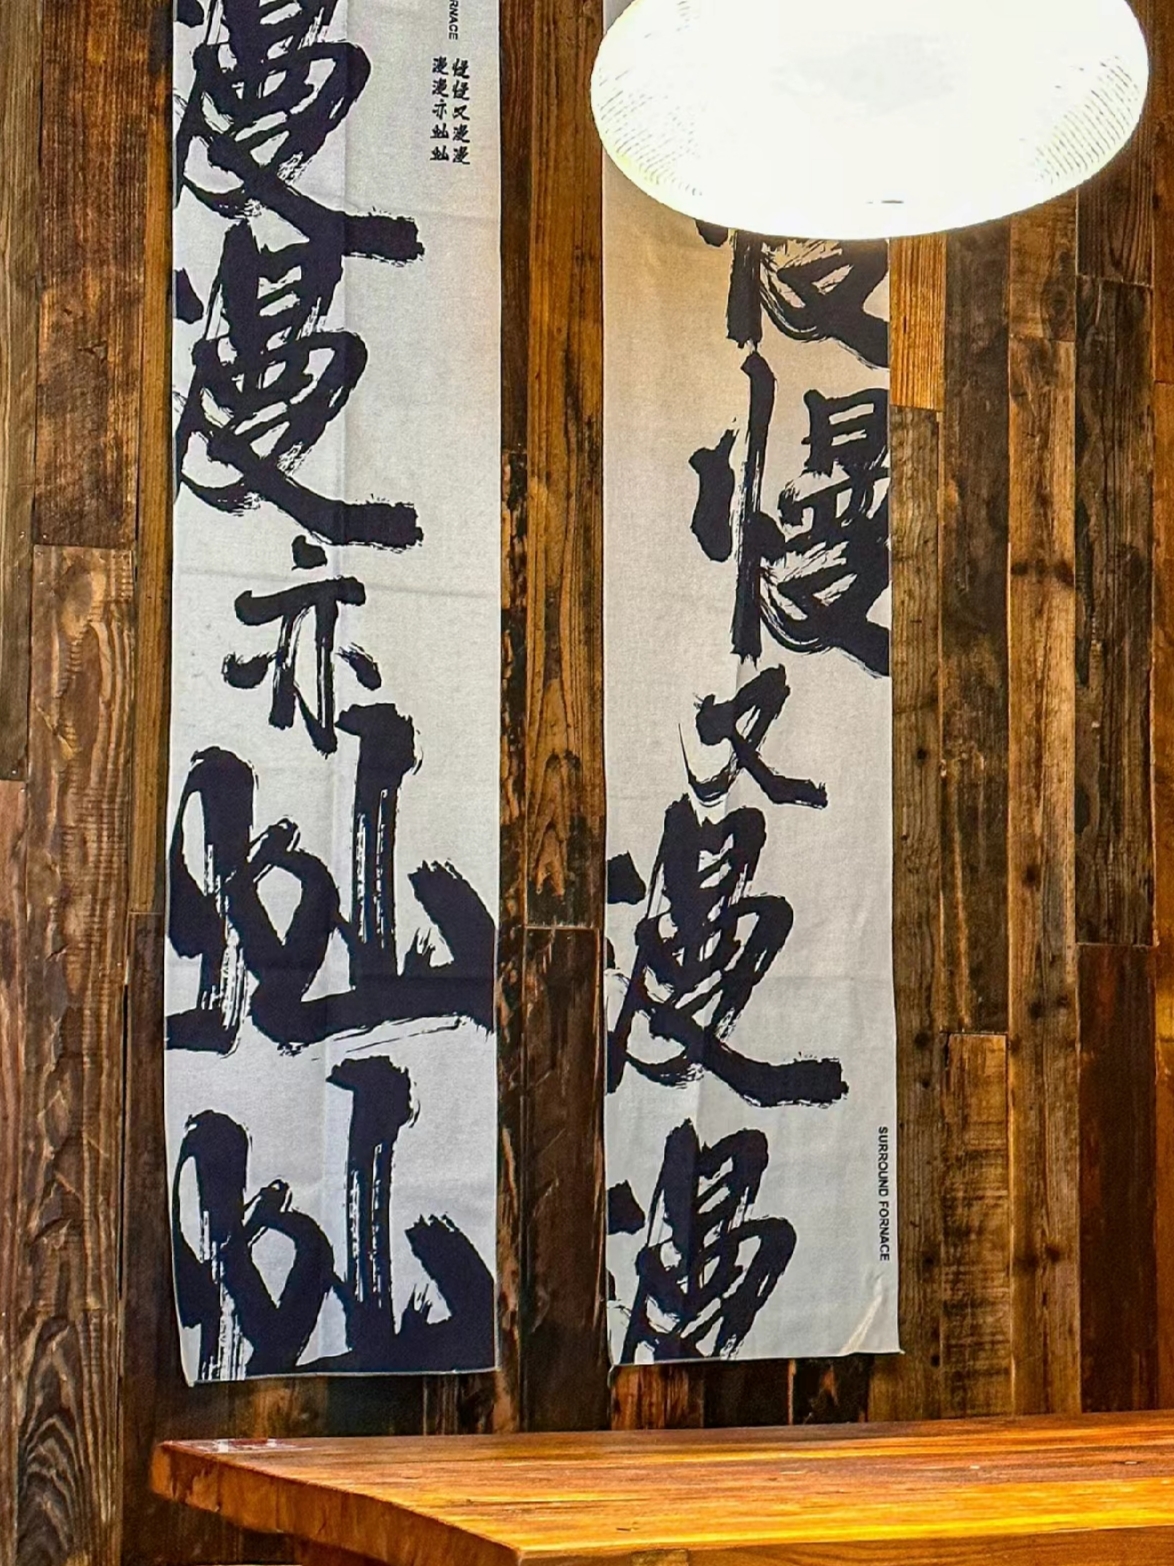 慢慢又漫漫
SURROUND FORNACE
RNACE
慢慢又漫漫
漫漫亦灿灿
漫漫亦灿灿